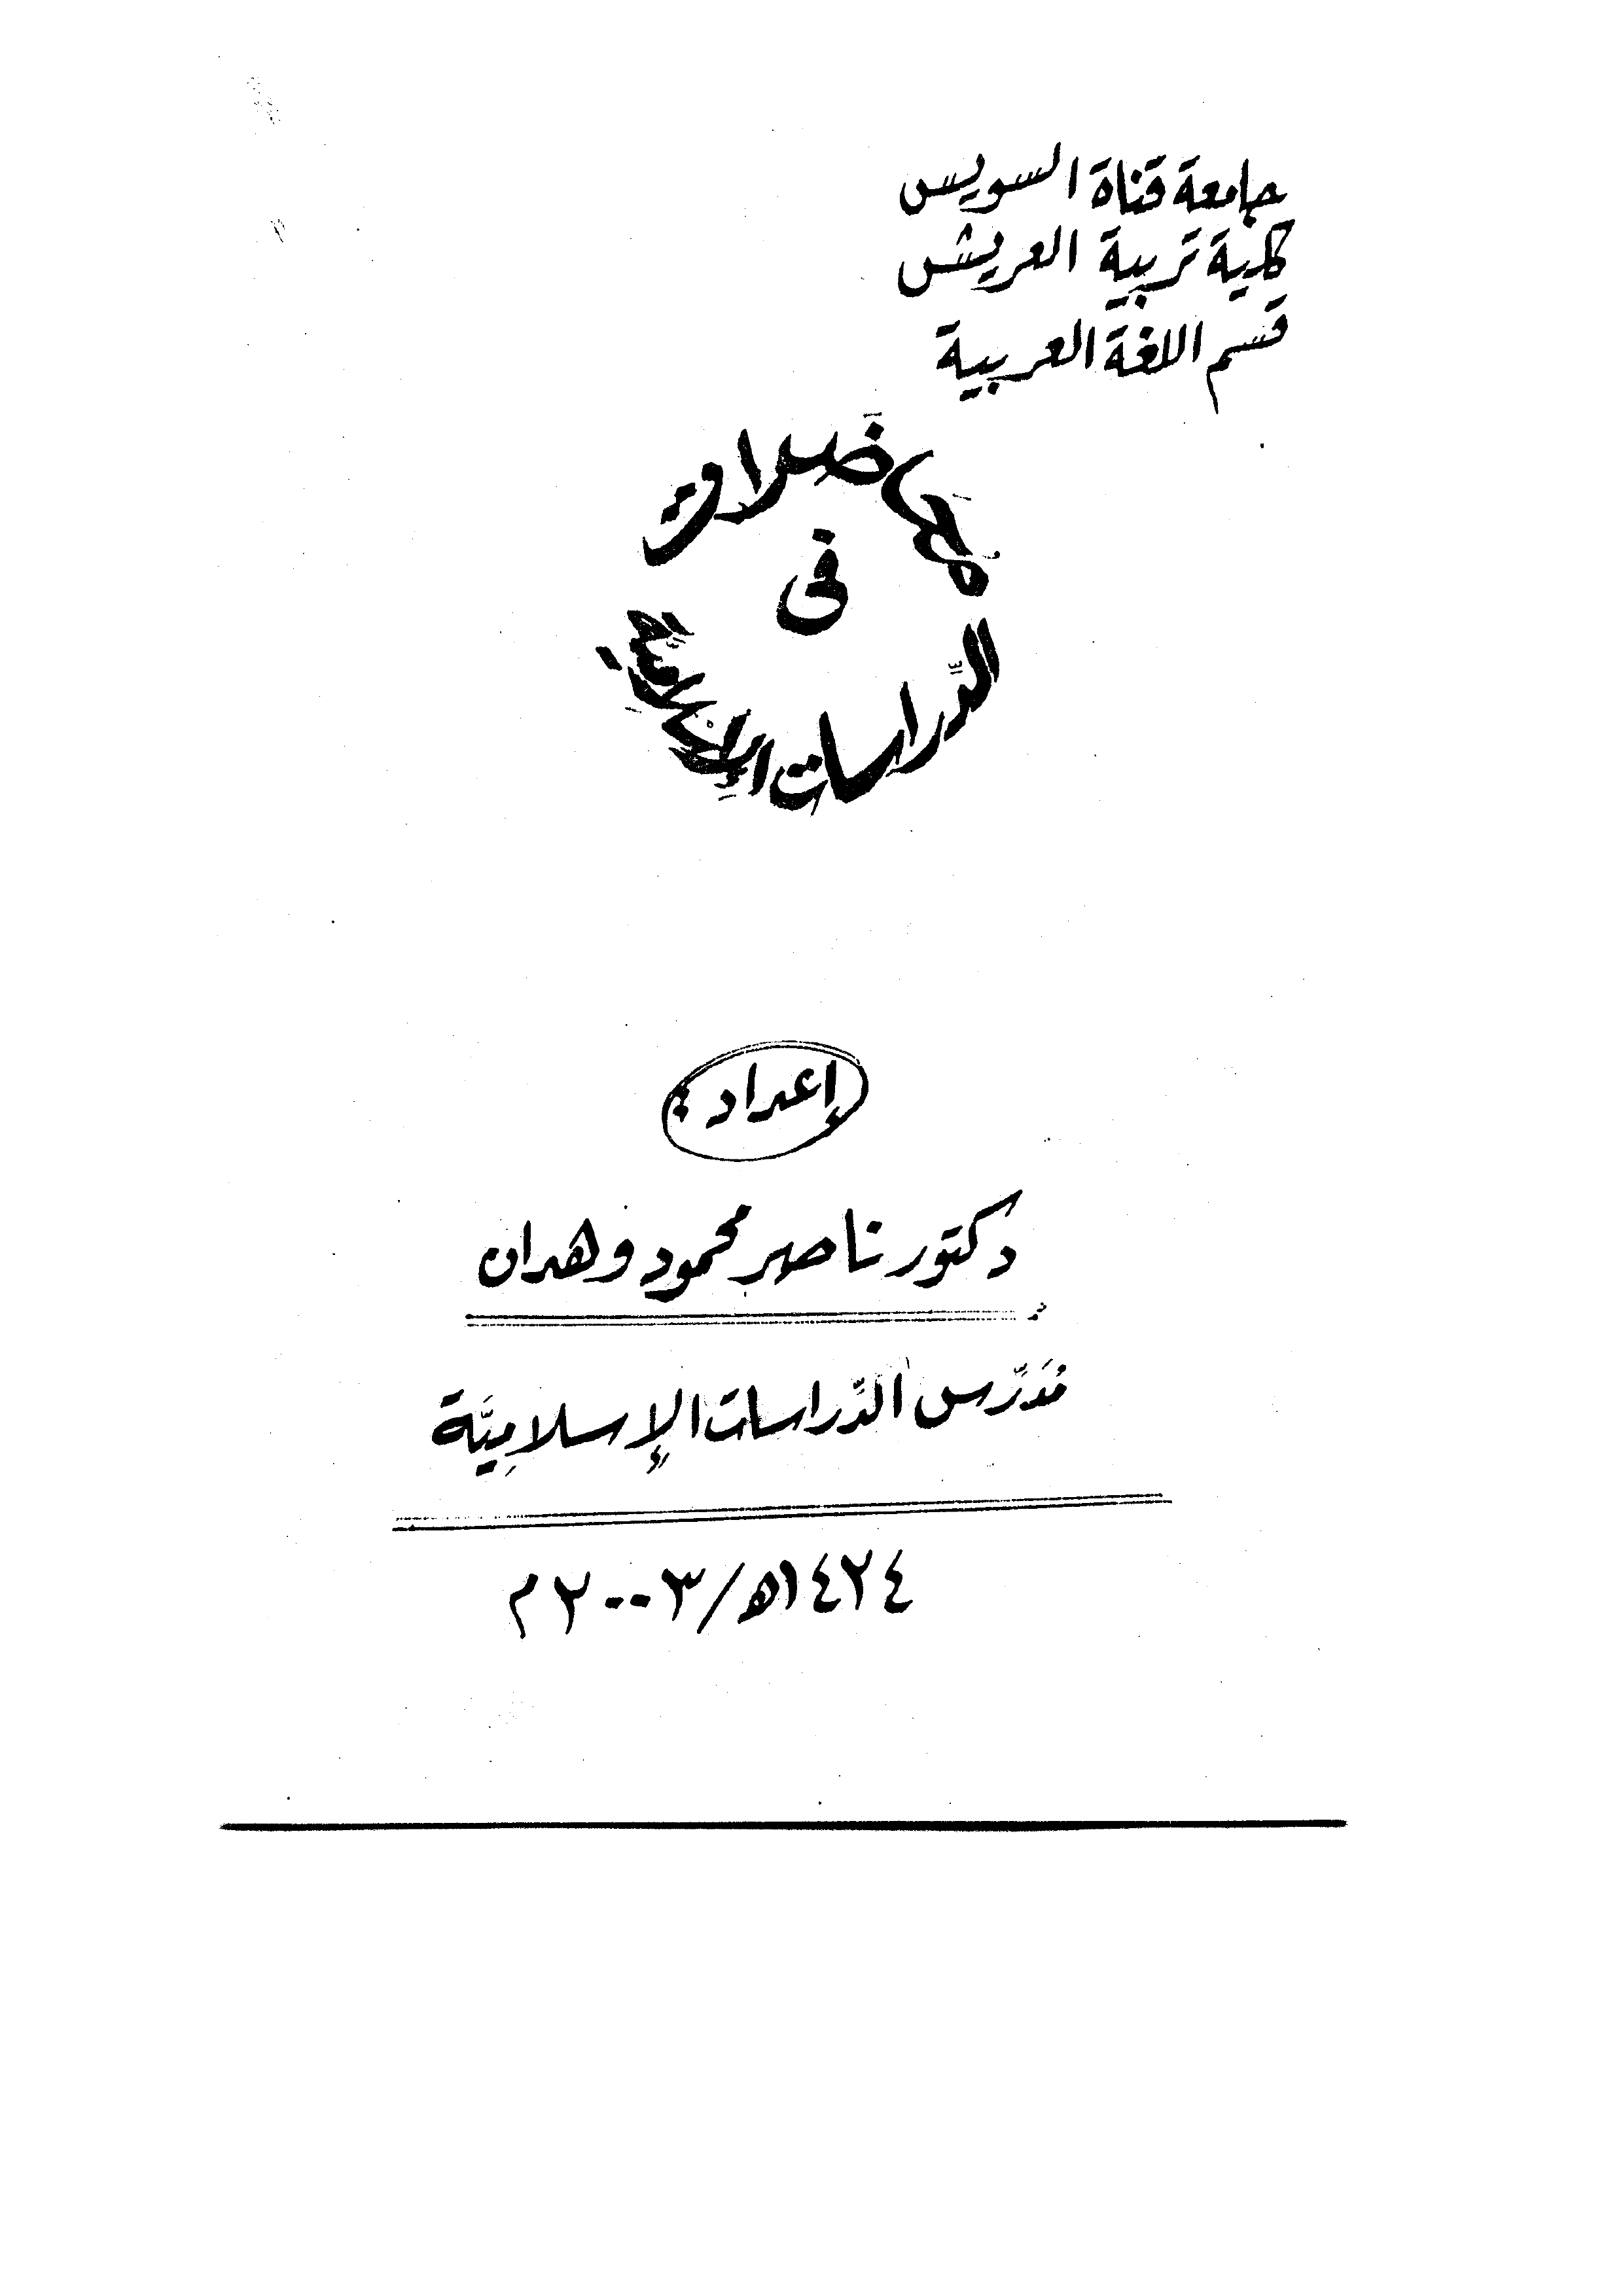 جامعة قناة السويس
كلية تربية العريش
قسم اللغة العربية
محاضرات
فى
الدِّراسات الإسلاميَّة
إعداد :
دكتور ناصر محمود وهدان
مُدَرِّس الدِّراسات الإسلامِيَّة
١٤٢٤هـ/٢٠٠٣م